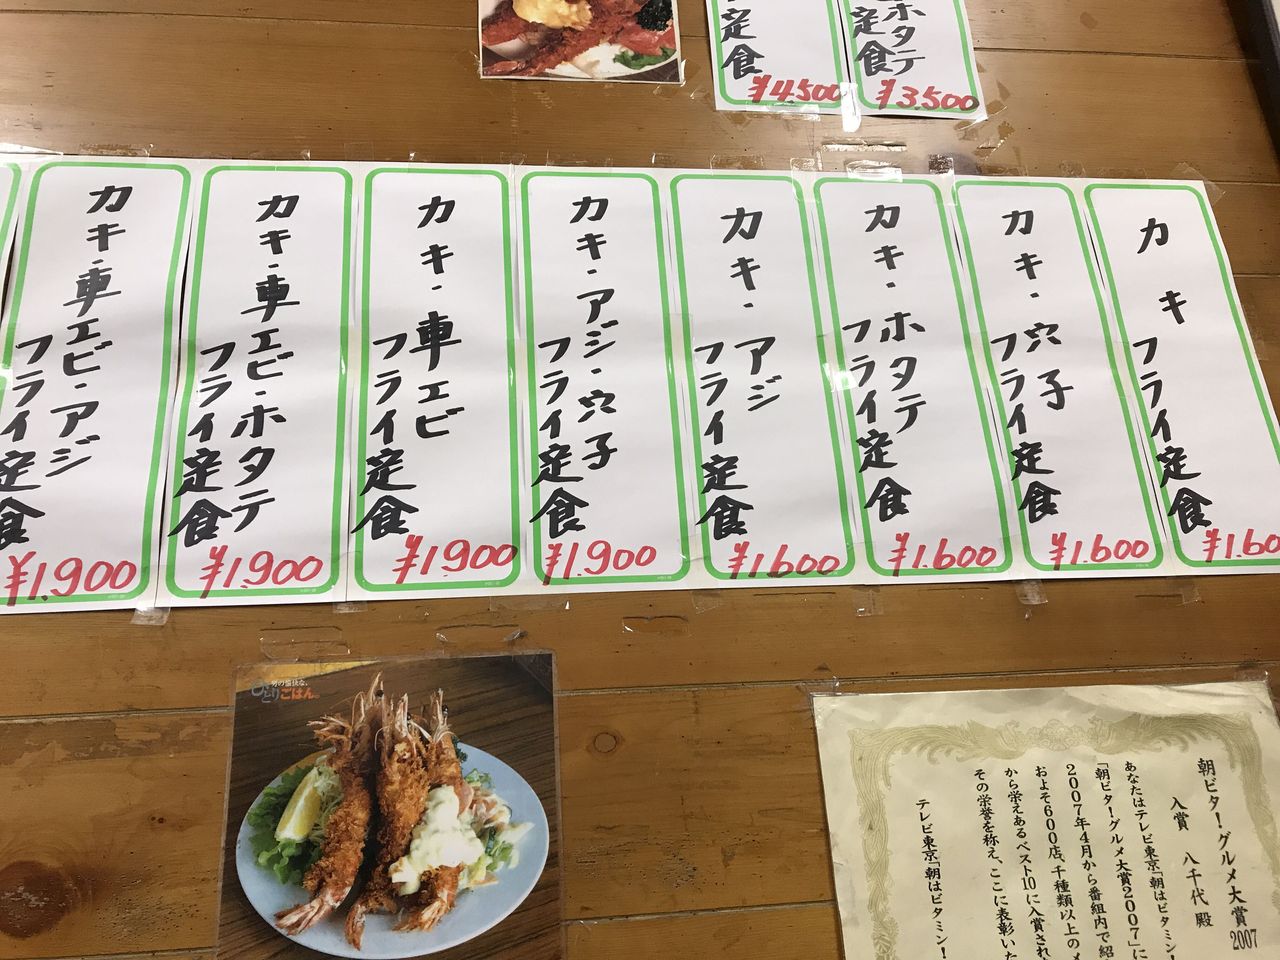 ホタテ
定食
¥3,500
定食
¥4,500
カキ
フライ定食
¥1,60
カキ・穴子
フライ定食
¥1,600
カキ・ホタテ
フライ定食
¥1,600
カキ・アジ
フライ定食
¥1,600
カキ・アジ・穴子
フライ定食
¥1,900
カキ・車エビ
フライ定食
¥1,900
カキ・車エビ・ホタテ
フライ定食
¥1,900
カキ・車エビ・アジ
フライ定食
¥1,900
男の愉快な、
ひとりごはん。
朝ビタ！グルメ大賞2007
入賞 八千代 殿
あなたはテレビ東京「朝はビタミン！
「朝ビタ！グルメ大賞2007」に
2007年4月から番組内で紹
およそ600店、千種類以上のメ
から栄えあるベスト10に入賞され
その栄誉を称え、ここに表彰いた
テレビ東京「朝はビタミン！